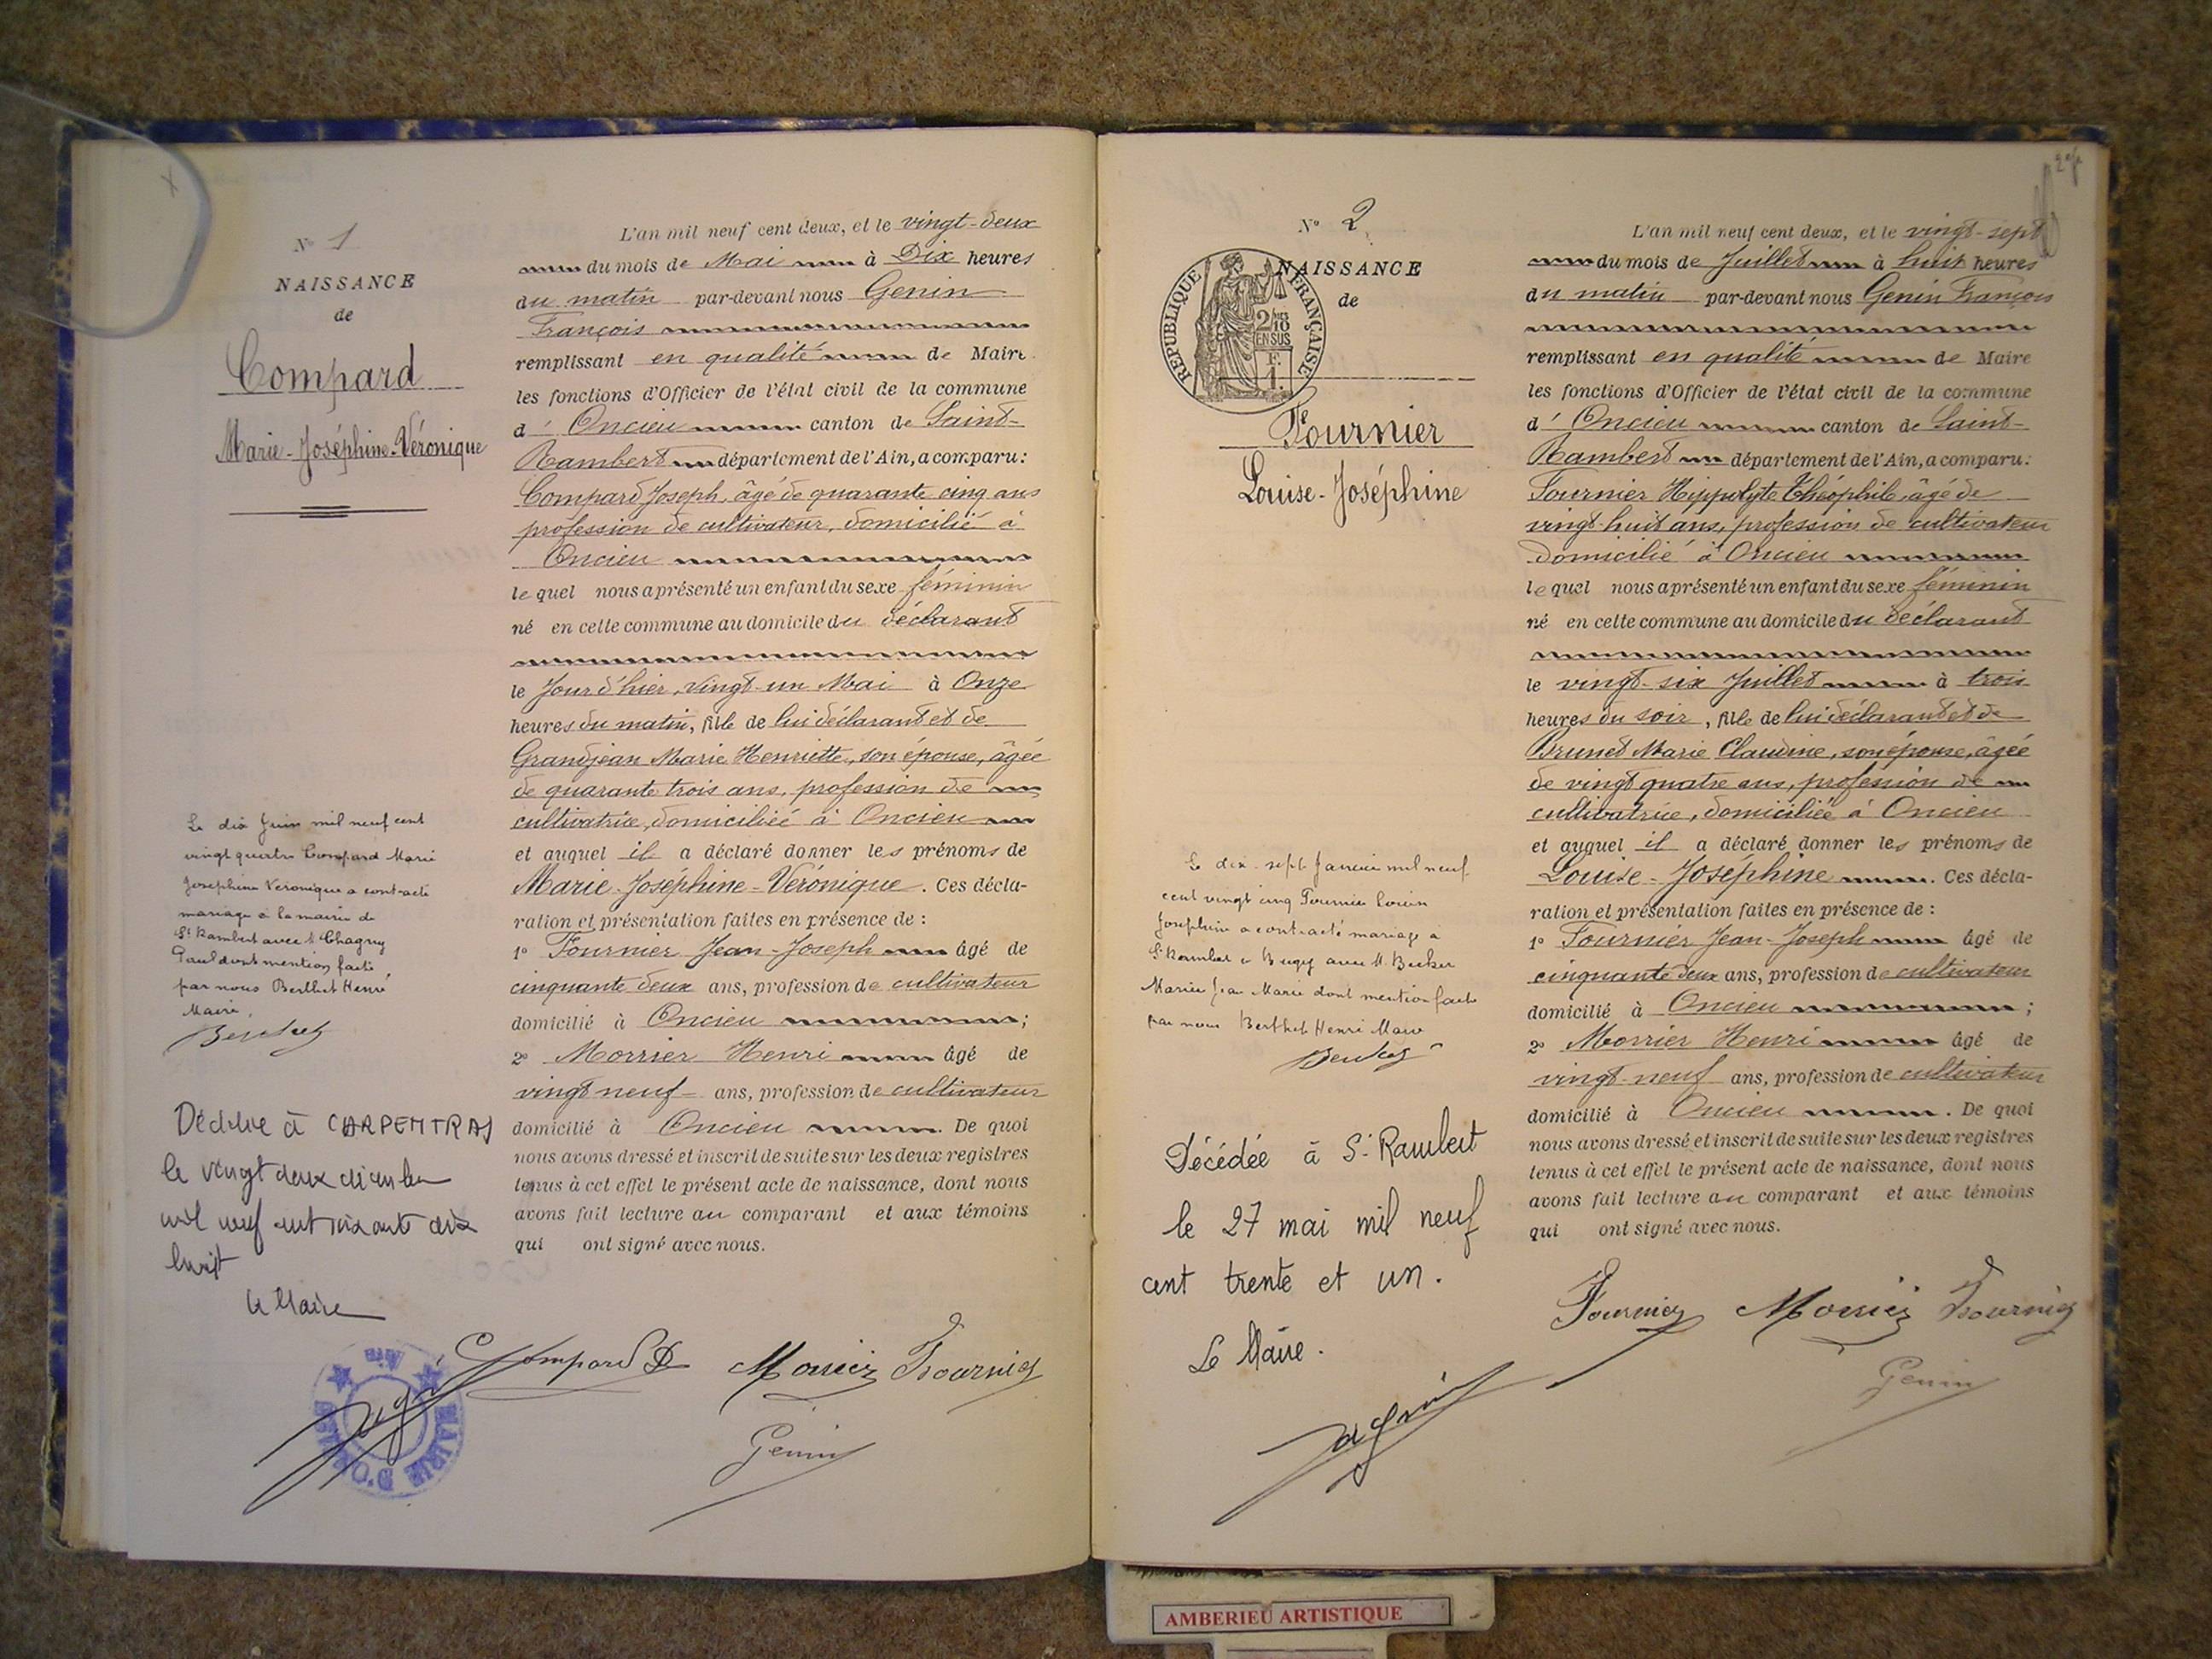 Nº 1
NAISSANCE
de
Compard
Marie-Joséphine-Véronique
Le dix Juin mil neuf cent
vingt quatre Compard Marie
Joséphine Véronique a contracté
mariage à la mairie de
St Rambert avec M. Chagny
Paul dont mention faite
par nous Berthet Henri
Maire
Décédée à CARPENTRAS
le vingt deux décembre
mil neuf cent soixante dix
huit
Le Maire
MAIRIE D'ONCIEU
Ain
L'an mil neuf cent deux, et le vingt-deux
du mois de Mai à Dix heures
du matin par-devant nous Genin
François
remplissant en qualité de Maire
les fonctions d'Officier de l'état civil de la commune
d' Oncieu canton de Saint-
Rambert département de l'Ain, a comparu:
Compard Joseph, âgé de quarante cinq ans
profession de cultivateur, domicilié à
Oncieu
le quel nous a présenté un enfant du sexe féminin
né en cette commune au domicile du déclarant
le Jour d'hier, vingt-un Mai à Onze
heures du matin, fille de lui déclarant et de
Grandjean Marie Henriette, son épouse, âgée
de quarante trois ans, profession de
cultivatrice, domiciliée à Oncieu
et auquel il a déclaré donner les prénoms de
Marie-Joséphine-Véronique. Ces décla-
ration et présentation faites en présence de :
1º Fournier Jean-Joseph âgé de
cinquante deux ans, profession de cultivateur
domicilié à Oncieu ;
2º Morrier Henri âgé de
vingt neuf ans, profession de cultivateur
domicilié à Oncieu . De quoi
nous avons dressé et inscrit de suite sur les deux registres
tenus à cet effet le présent acte de naissance, dont nous
avons fait lecture au comparant et aux témoins
qui ont signé avec nous.
Compard Morrier Fournier
Genin
Nº 2
RÉPUBLIQUE FRANÇAISE
2/10 EN SUS
F. 1.
NAISSANCE
de
Fournier
Louise-Joséphine
Le dix-sept Janvier mil neuf
cent vingt cinq Fournier Louise
Joséphine a contracté mariage à
St Rambert en Bugey avec M. Becker
Marie Jean Marie dont mention faite
par nous Berthet Henri Maire
Décédée à St Rambert
le 27 mai mil neuf
cent trente et un.
Le Maire.
L'an mil neuf cent deux, et le vingt-sept
du mois de Juillet à huit heures
du matin par-devant nous Genin François
remplissant en qualité de Maire
les fonctions d'Officier de l'état civil de la commune
d' Oncieu canton de Saint-
Rambert département de l'Ain, a comparu:
Fournier Hippolyte Théophile, âgé de
vingt-huit ans, profession de cultivateur
domicilié à Oncieu
le quel nous a présenté un enfant du sexe féminin
né en cette commune au domicile du déclarant
le vingt-six Juillet à trois
heures du soir, fille de lui déclarant et de
Brunet Marie Claudine, son épouse, âgée
de vingt quatre ans, profession de
cultivatrice, domiciliée à Oncieu
et auquel il a déclaré donner les prénoms de
Louise-Joséphine . Ces décla-
ration et présentation faites en présence de :
1º Fournier Jean-Joseph âgé de
cinquante deux ans, profession de cultivateur
domicilié à Oncieu ;
2º Morrier Henri âgé de
vingt-neuf ans, profession de cultivateur
domicilié à Oncieu . De quoi
nous avons dressé et inscrit de suite sur les deux registres
tenus à cet effet le présent acte de naissance, dont nous
avons fait lecture au comparant et aux témoins
qui ont signé avec nous.
Fournier Morrier Fournier
Genin
AMBERIEU ARTISTIQUE